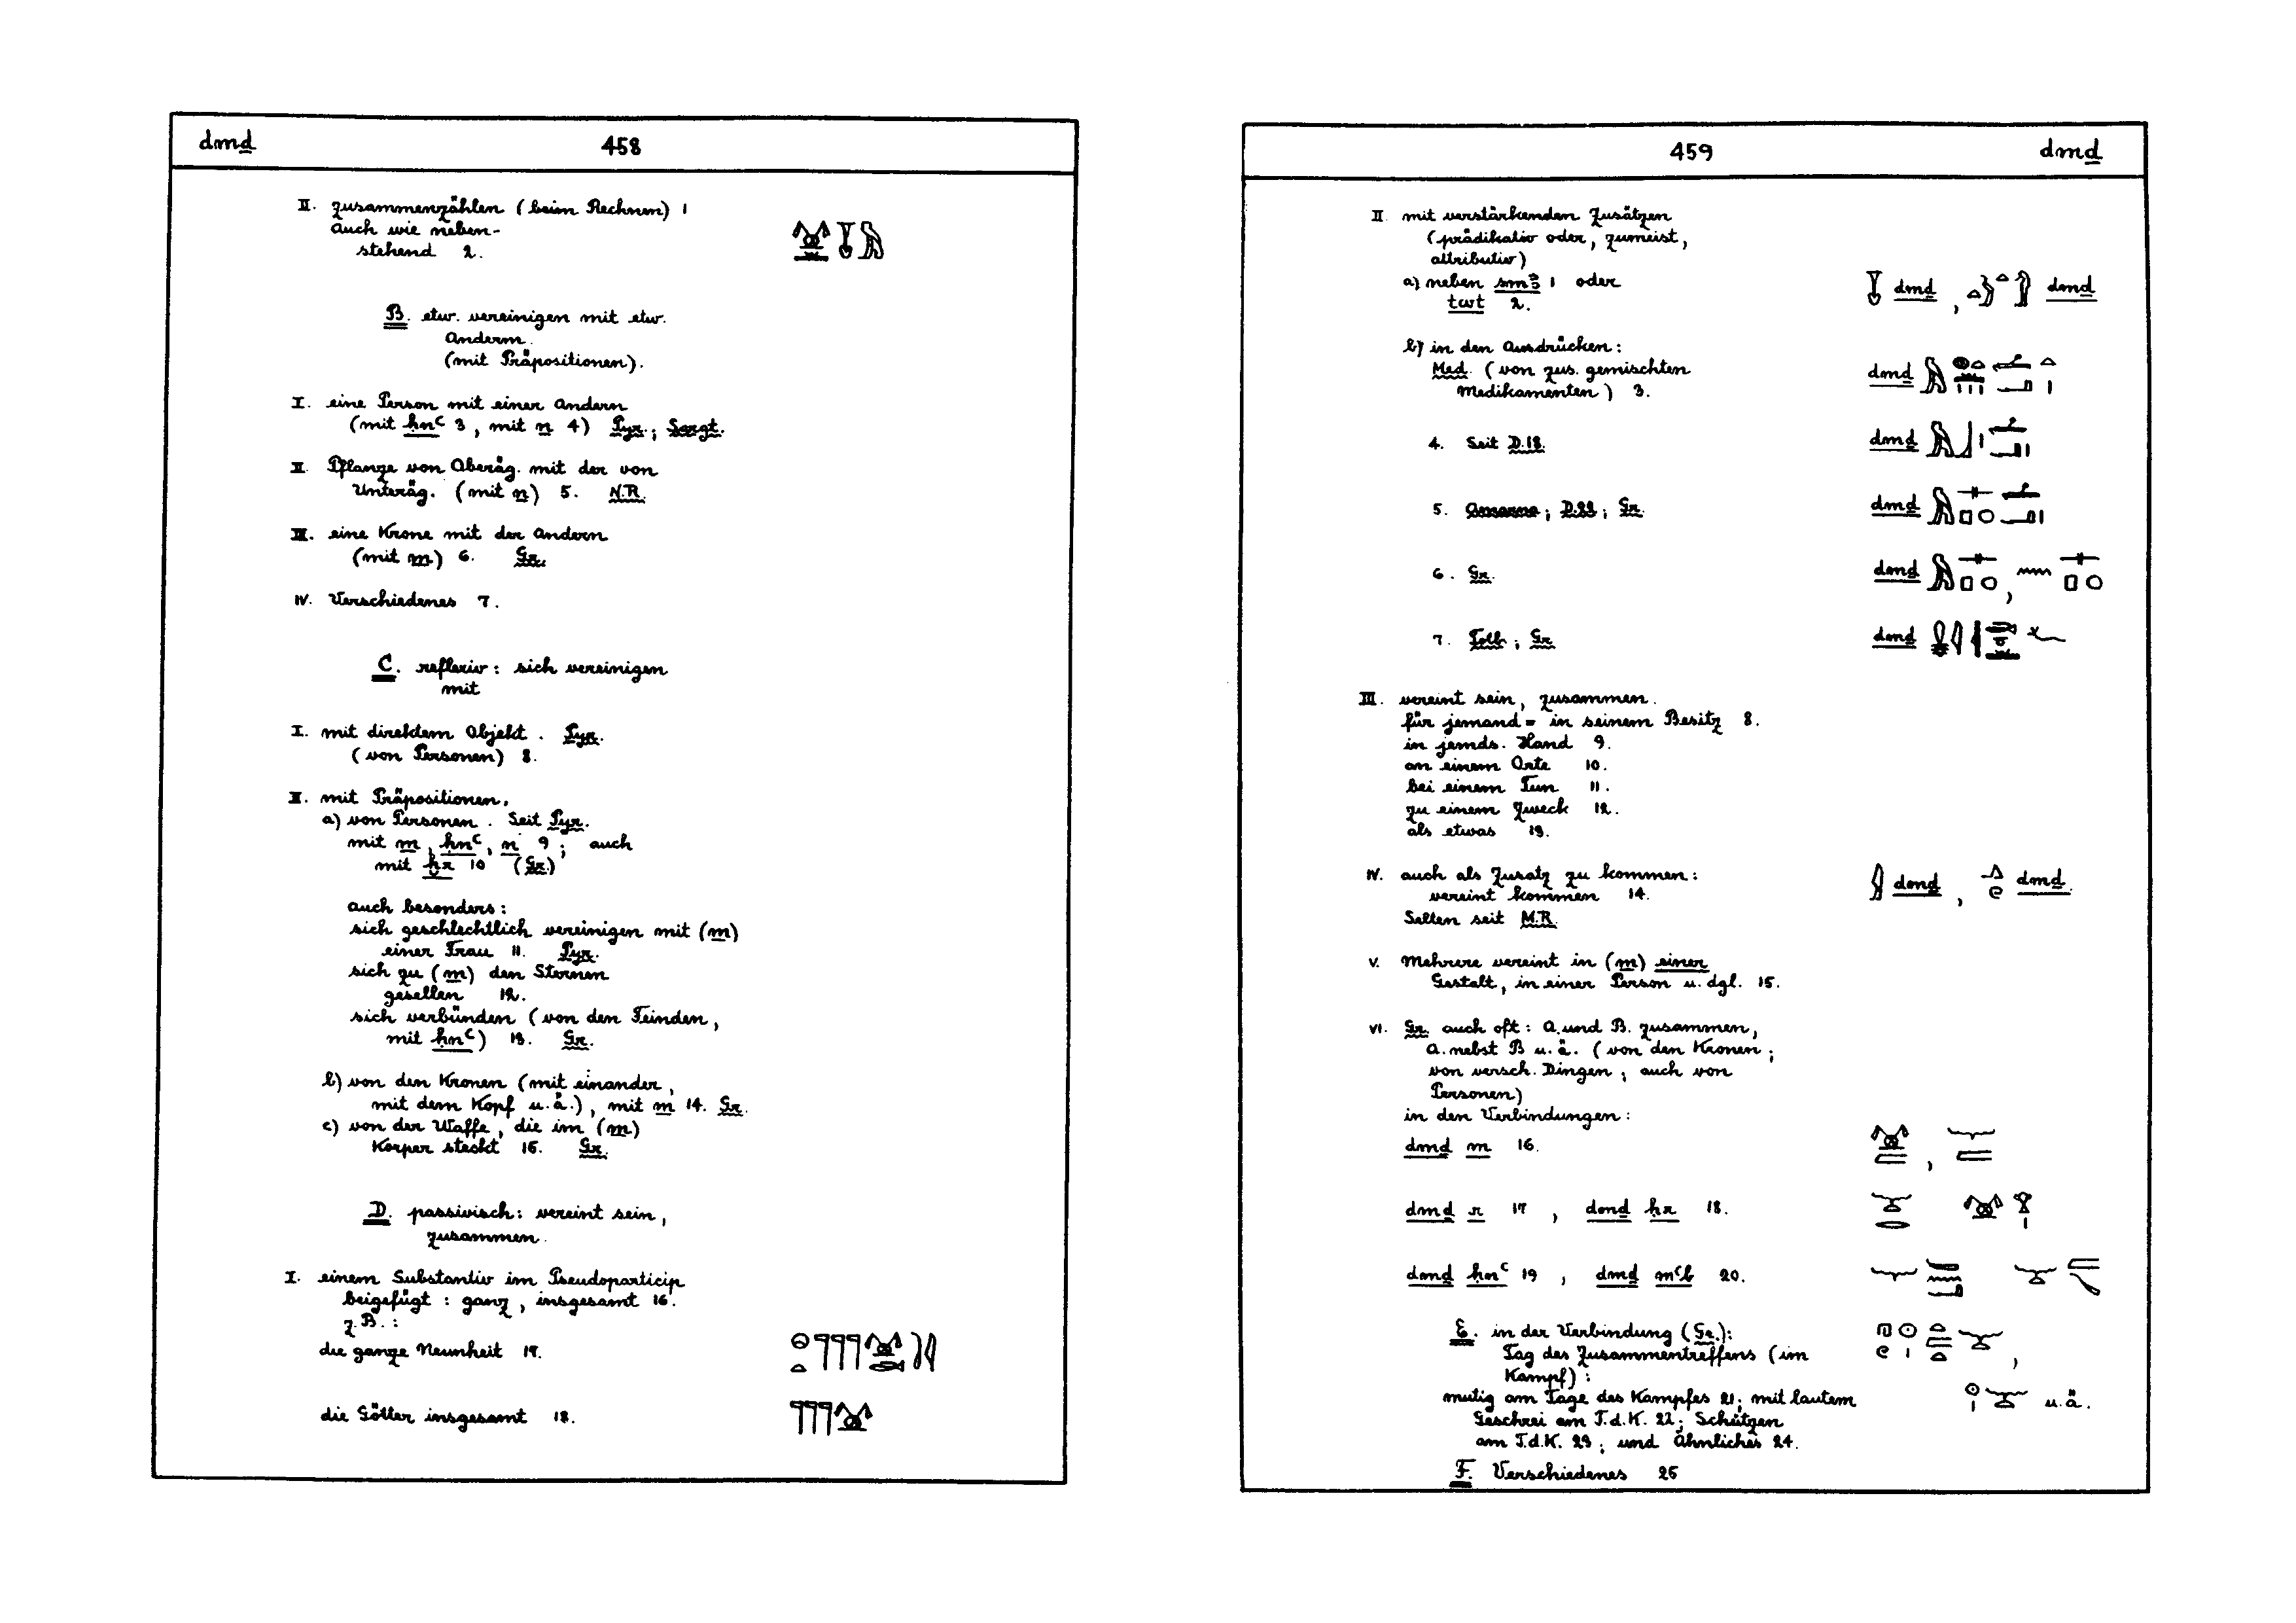 dmḏ 458
II. zusammenzählen (beim Rechnen) 1
auch wie neben-
stehend 2.
B. etw. vereinigen mit etw.
Anderm.
(mit Präpositionen).
I. eine Person mit einer Andern
(mit ḥnꜥ 3, mit n 4) Pyr.; Sargt.
II. Pflanze von Oberäg. mit der von
Unteräg. (mit n) 5. N.R.
III. eine Krone mit der andern
(mit m) 6. Gr.
IV. Verschiedenes 7.
C. reflexiv: sich vereinigen
mit
I. mit direktem Objekt. Pyr.
(von Personen) 8.
II. mit Präpositionen.
a) von Personen. Seit Pyr.
mit m, ḥnꜥ, n 9; auch
mit ẖr 10 (Gr.)
auch besonders:
sich geschlechtlich vereinigen mit (m)
einer Frau 11. Pyr.
sich zu (m) den Sternen
gesellen 12.
sich verbünden (von den Feinden,
mit ḥnꜥ) 13. Gr.
b) von den Kronen (mit einander,
mit dem Kopf u.ä.), mit m 14. Gr.
c) von der Waffe, die im (m)
Körper steckt 15. Gr.
D. passivisch: vereint sein,
zusammen.
I. einem Substantiv im Pseudoparticip
beigefügt: ganz, insgesamt 16.
z.B.:
die ganze Neunheit 17.
die Götter insgesamt 18.
459 dmḏ
II. mit verstärkenden Zusätzen
(prädikativ oder, zumeist,
attributiv)
a) neben smꜣ 1 oder
twt 2. dmḏ, dmḏ
b) in den Ausdrücken:
Med. (von zus. gemischten
Medikamenten) 3. dmḏ
4. Seit D.18. dmḏ
5. Amarna; D.22; Gr. dmḏ
6. Gr. dmḏ
7. Totb.; Gr. dmḏ
III. vereint sein, zusammen.
für jemand = in seinem Besitz 8.
in jemds. Hand 9.
an einem Orte 10.
bei einem Tun 11.
zu einem Zweck 12.
als etwas 13.
IV. auch als Zusatz zu kommen:
vereint kommen 14. dmḏ, dmḏ.
Selten seit M.R.
V. Mehrere vereint in (m) einer
Gestalt, in einer Person u. dgl. 15.
VI. Gr. auch oft: A. und B. zusammen,
A. nebst B u.ä. (von den Kronen;
von versch. Dingen; auch von
Personen)
in den Verbindungen:
dmḏ m 16.
dmḏ r 17, dmḏ ḥr 18.
dmḏ ḥnꜥ 19, dmḏ mꜥb 20.
E. in der Verbindung (Gr.):
Tag des Zusammentreffens (im
Kampf):
mutig am Tage des Kampfes 21; mit lautem u.ä.
Geschrei am T.d.K. 22; Schützen
am T.d.K. 23; und Ähnliches 24.
F. Verschiedenes 25